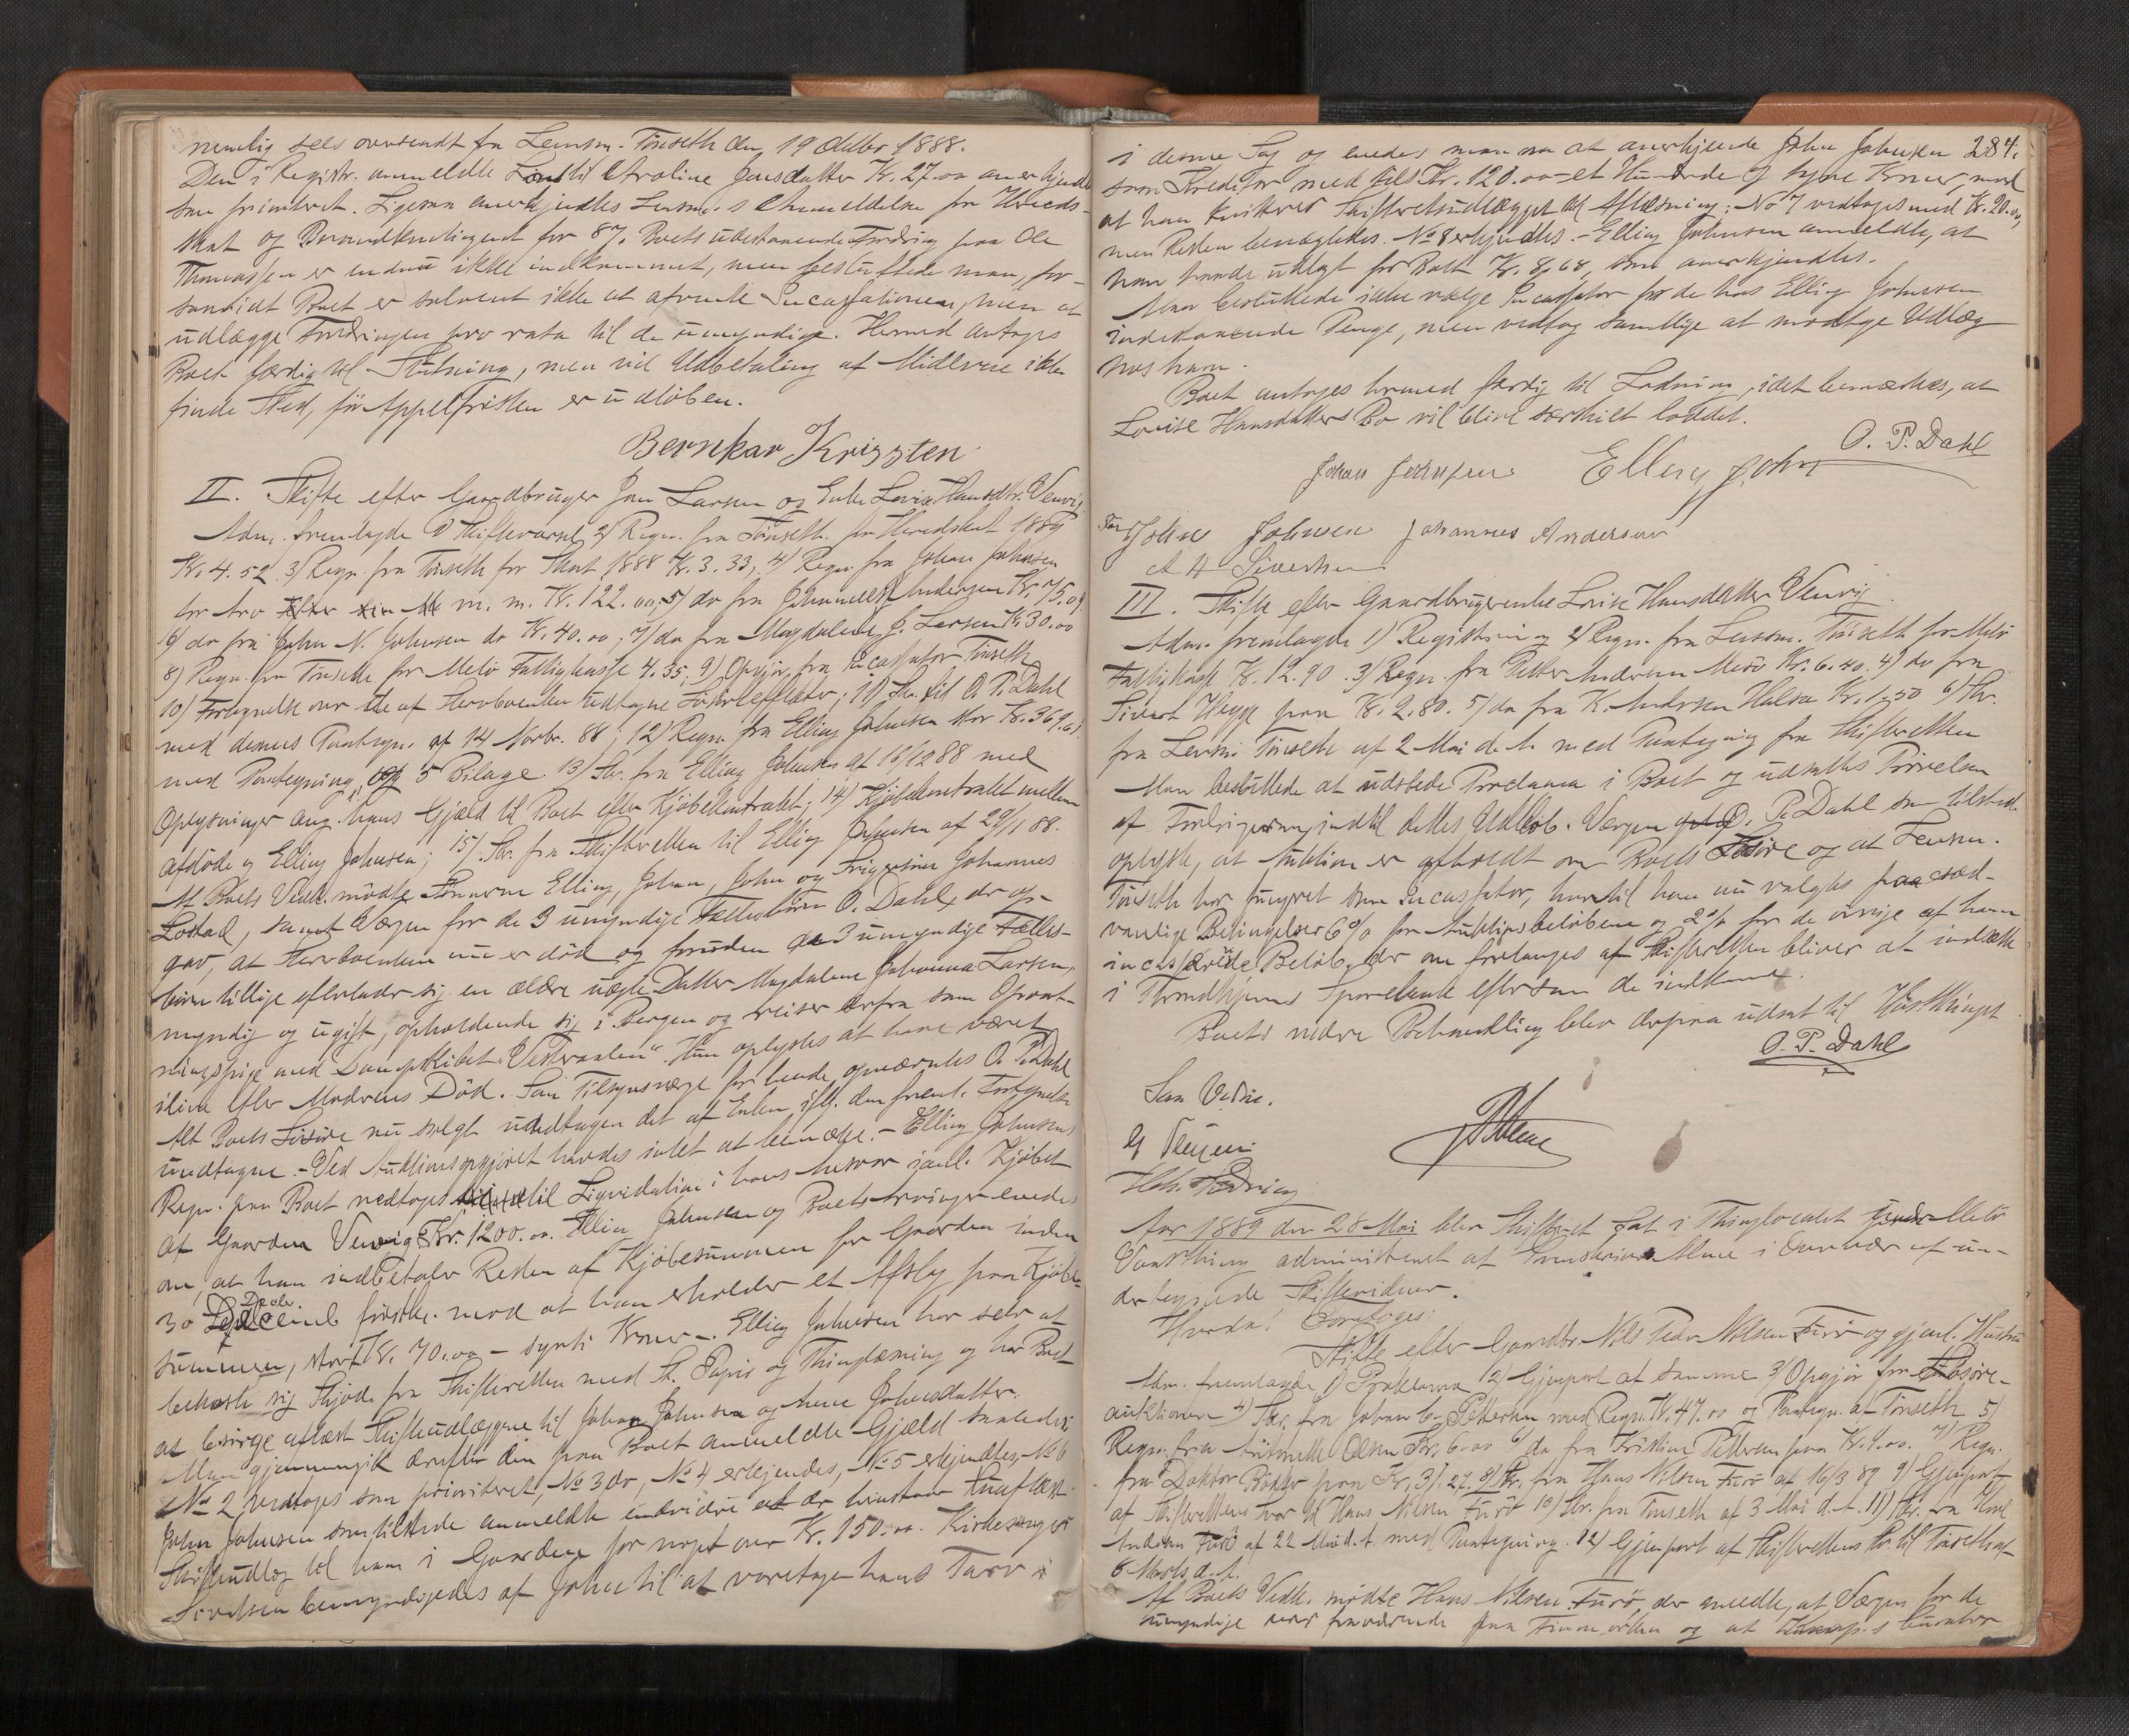 nemlig sees oversendt fra Lensm. Tönseth den 19 Oktbr 1888.
Den i Registr. anmeldte Lön til Caroline Jensdatter Kr. 27.00 anerkjendtes
som prioriteret. Ligesaa anerkjendtes Lensm.s Anmeldelse for Hereds-
skat og Brandkontingent for 87. Boets udestaaende Fordring paa Ole
Thomassen er endnu ikke indkommet, men besluttede man, for-
saavidt Boet er solvent ikke at afvente Incassationen, men at
udlægge Fordringen pro rata til de umyndige. Hermed antoges
Boet færdig til Slutning, men vil Udbetaling af Midlerne ikke
finde Sted, för Appelfristen er udlöben.
Bernhar Krigsten
II. Skifte efter Gaardbruger Jon Larsen og Enke Lovise Hansdtr. Venvig
Adm. fremlagde 1) Skiftevarsel, 2) Regn. fra Tönseth for Heredskat 1889
Kr. 4.52. 3) Regn. fra Tönseth for Skat 1888 Kr. 3.33, 4) Regn. fra Johan Johnsen
for m. m. Kr. 122.00, 5) do fra Johannes Andersen Kr. 75.00.
6) do fra John N. Johnsen do Kr. 40.00; 7) do fra Magdalene J. Larsen Kr. 30.00
8) Regn. fra Tönseth for Melö Fattigkasse 4.35; 9) Opgjör fra Incassator Tönseth
10) Fortegnelse over de af Stervboenken udtagne Lösöreeffekter; 11) Skr. til O. P. Dahl
med dennes Paategn. af 14 Novbr. 88; 12) Regn. fra Elling Johnsen stor Kr. 369.
med Paategning og 5 Bilage. 13) Skr. fra Elling Johnsen af 16/12 88 med
Oplysninger ang. hans Gjæld til Boet efter Kjöbekontrakt; 14) Kjöbekontrakt mellem
afdöde og Elling Johnsen; 15) Skr. fra Skifteretten til Elling Johnsen af 29/1 88.
Af Boets Vedk. mödte Sönnerne Elling, Johan, John og Svigersön Johannes
samt Værgen for de 3 umyndige Fællesbörn O. Dahl, der op-
gav, at Stervboenken nu er död og foruden de 3 umyndige Fælles-
börn tillige efterlader sig en ældre uægte Datter Magdalene Johanna Larsen,
myndig og ugift, opholdende sig i Bergen og reiser derfra som Opvart-
ningspige med Dampskibet "Vesteraalen". Hun oplystes at have været
ilive efter Modrens Död. Som Tilsynsværge for hende opnævntes O. P. Dahl
Alt Boets Lösöre nu solgt undtagen det af Enken iflg. den freml. Fortegnelse
undtagne. – Ved Auktionsopgjöret havdes intet at bemærke. – Elling Johnsens
Regn. paa Boet vedtoges til Liqvidation i hans Kjöbet
af Gaarden Venvig Kr. 1200.00. Elling Johnsen og Boets Arvinger enedes
om, at han indbetaler Resten af Kjöbesummen for Gaarden inden
30 förstk. mod at han erholder et Afslag paa Kjöbe-
summen, stort Kr. 70.00 – sytti Kroner –. Elling Johnsen har selv at
bekoste sig Skjöde fra Skifteretten med St. Papir og Thinglæsning og har Boet
at besörge aflæst Skifteudlæggene til Johan Johnsen og Anne Johnsdatter.
Man gjennemgik derefter den paa Boet anmeldte Gjæld saaledes:
No 2 vedtoges som prioriteret, No 3 do, No 4 erkjendes, No 5 erkjendtes, No 6
John Johnsen som tilstede anmeldte endvidere at der hinstaar uaflæst
Skifteudlæg til ham i Gaarden for noget over Kr. 150.00. Kirkesanger
Sivertsen bemyndigedes af John til at varetage hans Tarv
284.
i denne Sag og enedes man om at anerkjende John Johnsen
som Kreditor med tils Kr. 120.00 – et Hundrede og tyve Kroner, mod
at han kvitterer Skifteretsudlægget til Aflæsning; No 7 vedtoges med Kr. 20.00,
men Resten benægtedes. No 8 erkjendtes. – Elling Johnsen anmeldte, at
han havde udlagt for Boet Kr. 8.68, som anerkjendtes.
Man besluttede ikke vælge Incassator for de hos Elling Johnsen
indestaaende Penge, men vedtog samtlige at modtage Udlæg
hos ham.
Boet antoges hermed færdig til Lodning, idet bemærkes, at
Lovise Hansdatters Bo vil blive særskilt loddet.
O. P. Dahl
Johan Johnsen Elling John
For John Johnsen Johannes Andersen
A H Sivertsen
III. Skifte efter Gaardbrugerenke Lovise Hansdatter Venvig
Adm. fremlagde 1) Registrering 2) Regn. fra Lensm. Tönseth for Melö
Fattigkasse Kr. 12.90. 3) Regn. fra Petter Andersen Meso Kr. 6.40. 4) do fra
Sivert Hygge paa Kr. 2.80. 5) do fra K. Andersen Halsa Kr. 1.50 6) Skr.
fra Lensm. Tönseth af 2 Mai d. A. med Paategning fra Skifteretten
Man besluttede at udstede Proclama i Boet og udsattes Prövelsen
af Fordringerne indtil dettes Udlöb. Værgen O. P. Dahl som tilstede
oplyste, at Auktion er afholdt over Boets Lösöre og at Lensm.
Tönseth har fungeret som Incassator, hvortil han nu valgtes paa sæd-
vanlige Betingelser 6% for Auktionsbelöbene og 2% for de övrige af ham
incasserede Belöb, der om forlanges af Skifteretten bliver at indsætte
i Throndhjems Sparebank eftersom de indkomme.
Boets videre Behandling blev derpaa udsat til Hösttinget
O. P. Dahl
Som Vidne.
Aar 1889 den 28 Mai blev Skifteret sat i Thinglocalet under Melö
Vaarthing administreret af Sorenskriver i Overvær af un-
dertegnede Skiftevidner.
Hvorda! Foretoges:
Skifte efter Gaardbr. Nils Peder Nilsen Furö og gjenl. Hustru
Adm. fremlagde 1) Proklama 2) Gjenpart af samme 3) Opgjör for Lösöre-
auktionen 4) Skr. fra Johan C. Pettersen med Regn. Kr. 47.00 og Paategn. af Tönseth 5)
Regn. fra Olsen Kr. 6.00 6) do fra Kristine Pettersen paa Kr. 9.00. 7) Regn.
fra Doktor paa Kr. 31.27. 8) Skr. fra Hans Nilsen Furö af 16/3 89 9) Gjenpart
af Skifterettens Svar til Hans Nilsen Furö 10) Skr. fra Tönseth af 3 Mai d. A. 11) Skr. fra
Andersen Furö af 22 Mai d. A. med Paategning. 12) Gjenpart af Skifterettens Skr. til Tönseth af
6 Marts d. A.
Af Boets Vedk. mödte Hans Nilsen Furö, der meldte, at Værgen for de
umyndige var fraværende paa Finmarken og at